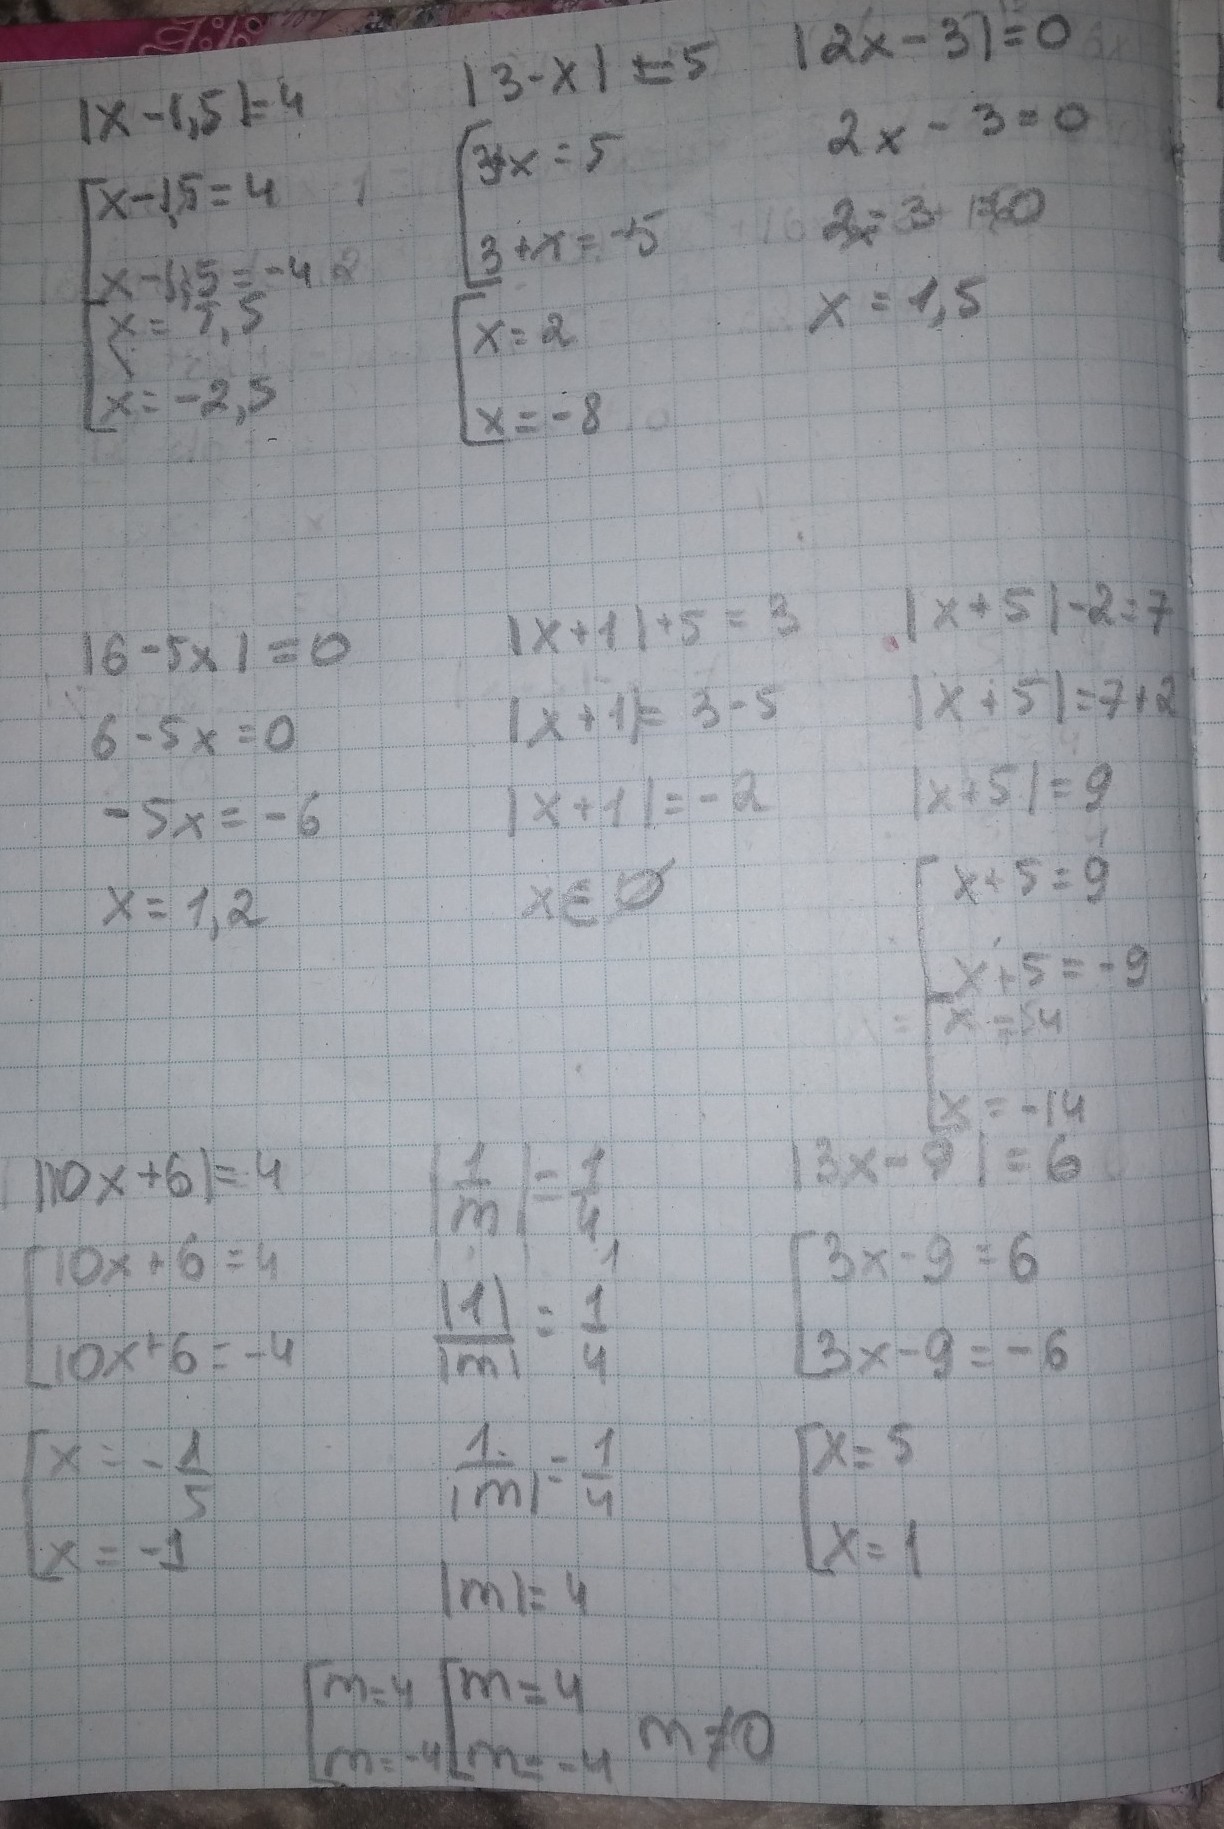 |x-1,5|=4
[x-1,5=4
x-1,5=-4
[x=
x=-2,5
|3-x|=5
x=5
3+x=-5
[x=2
x=-8
|2x-3|=0
2x-3=0
2x=3
x=1,5
|6-5x|=0
6-5x=0
-5x=-6
x=1,2
|x+1|+5=3
|x+1|=3-5
|x+1|=-2
x∈∅
|x+5|-2=7
|x+5|=7+2
|x+5|=9
[x+5=9
x+5=-9
[x=4
x=-14
|10x+6|=4
[10x+6=4
10x+6=-4
[x=-1/5
x=-1
|1/m|=1/4
|1|/|m|=1/4
1/|m|=1/4
|m|=4
[m=4 [m=4
m=-4 m=-4 m≠0
|3x-9|=6
[3x-9=6
3x-9=-6
[x=5
x=1